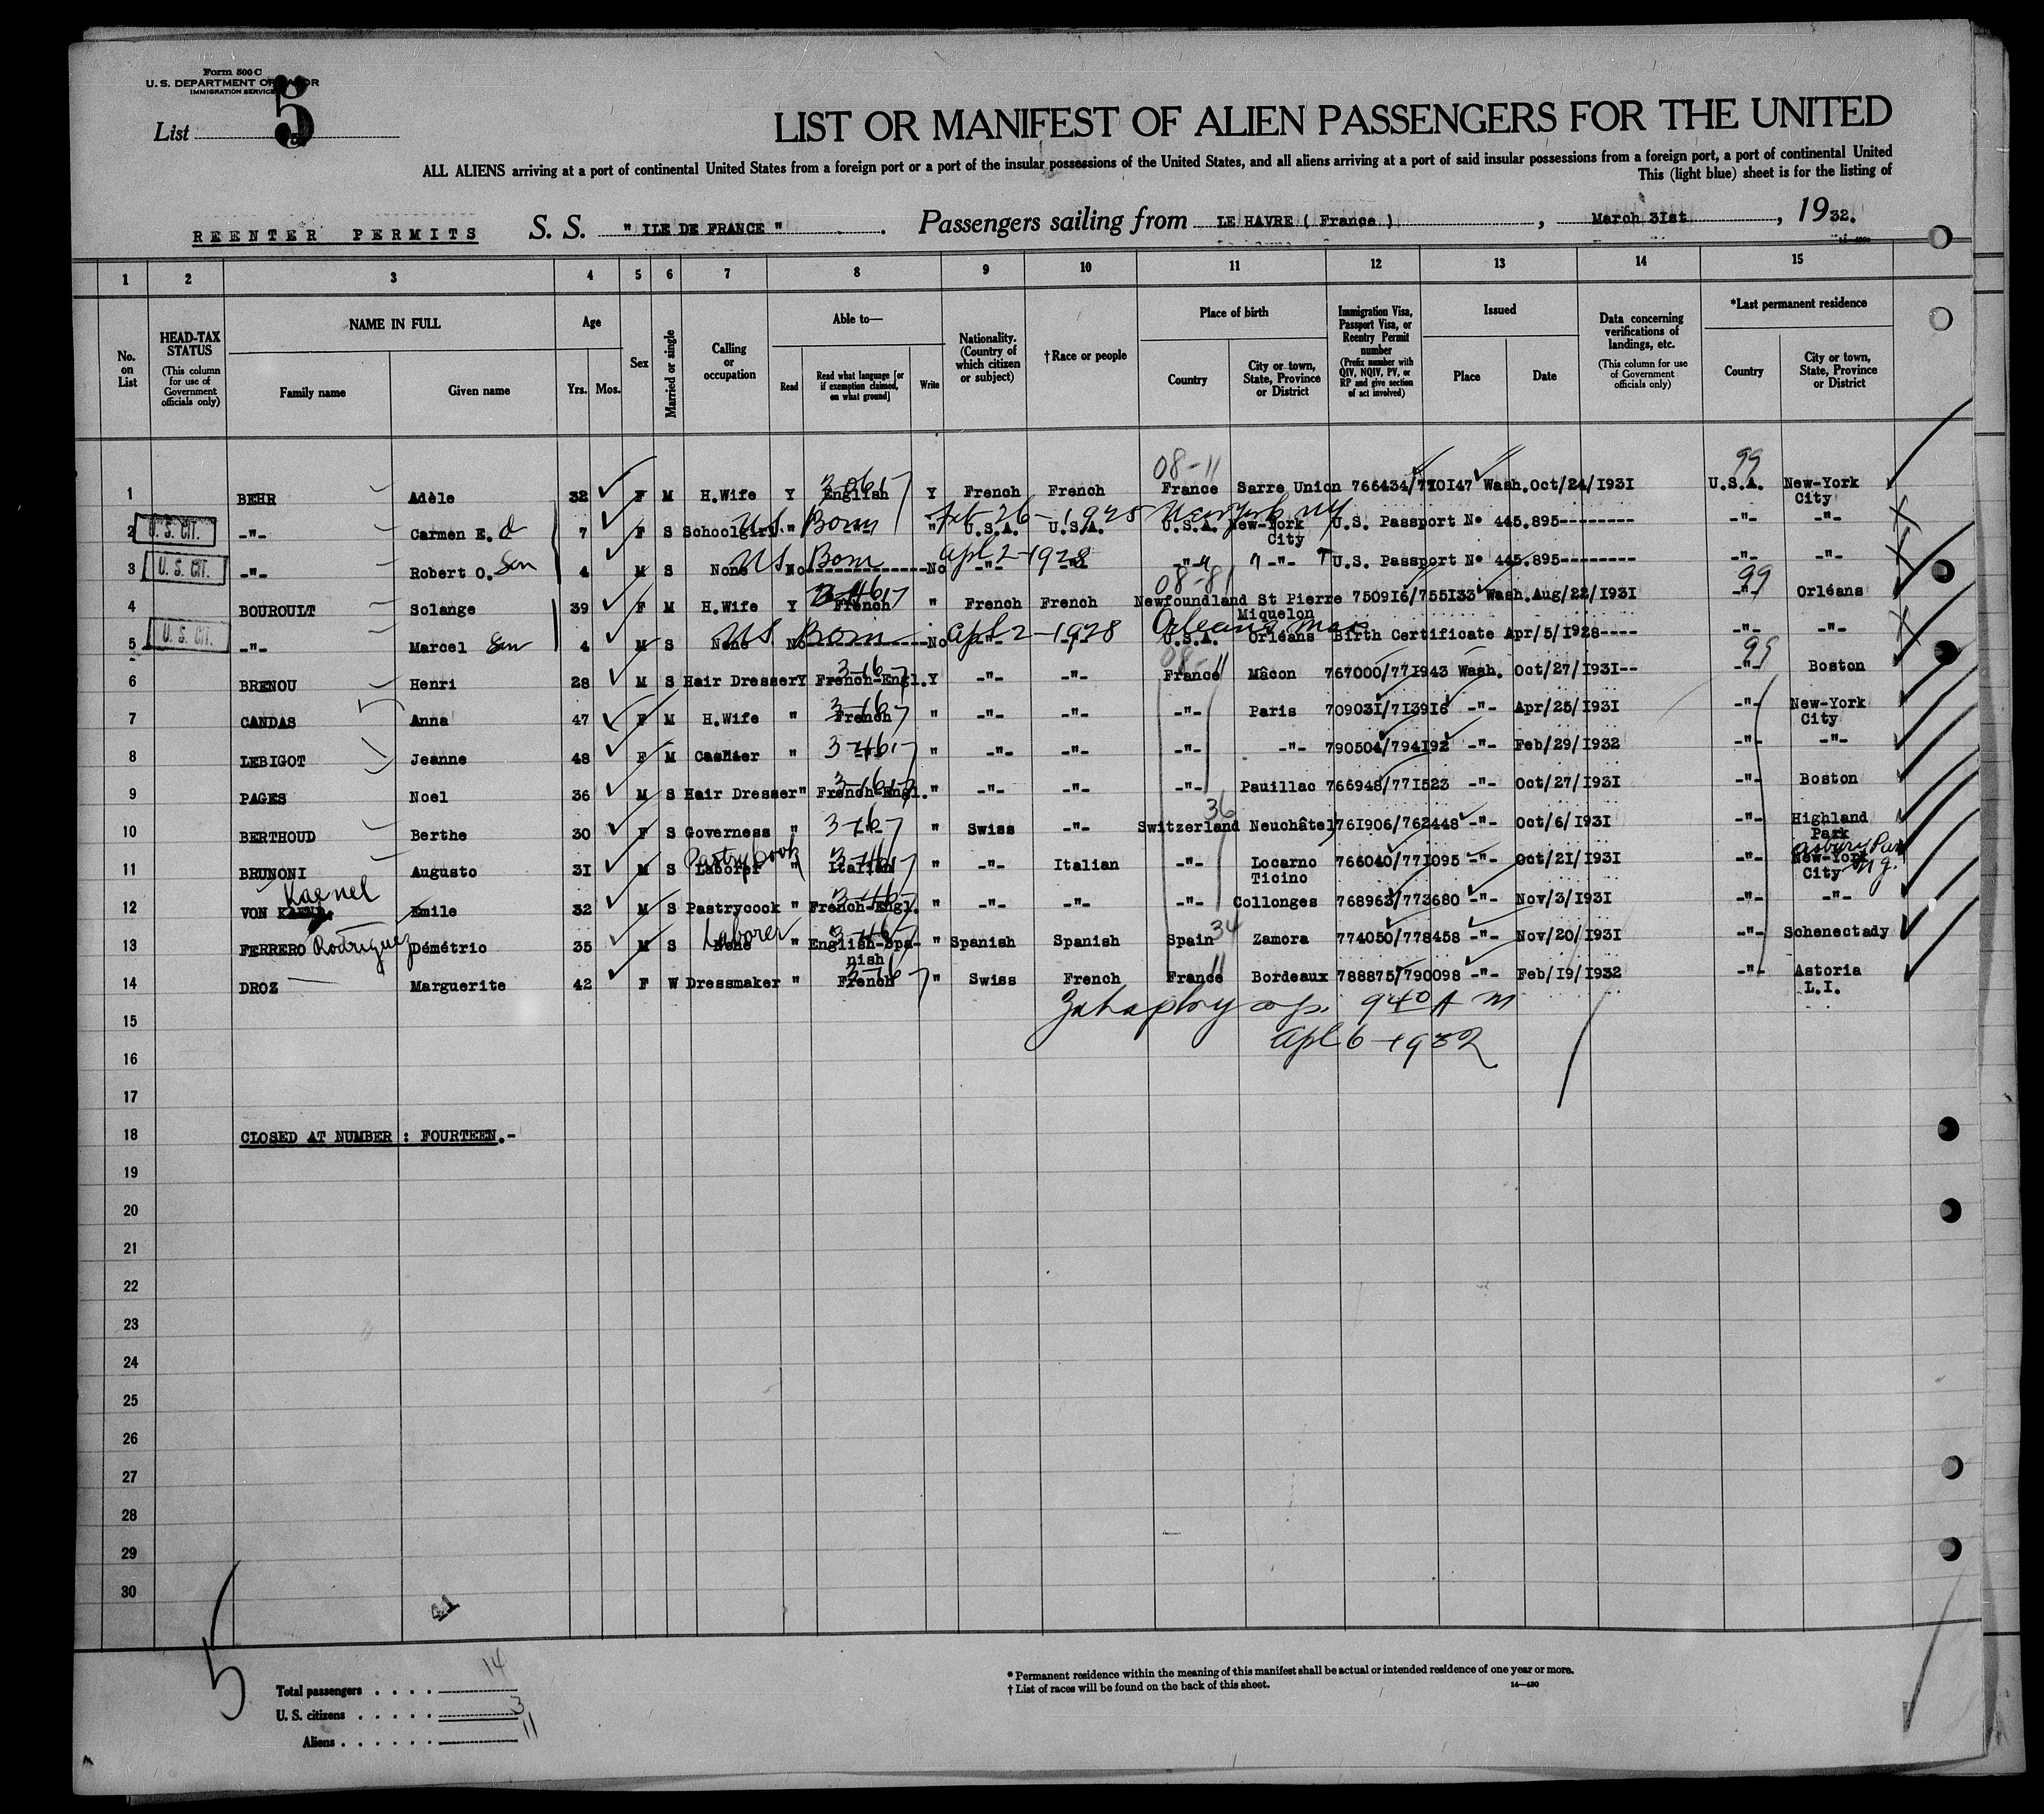 Form 500 C
U. S. DEPARTMENT OF LABOR
IMMIGRATION SERVICE
List 5
LIST OR MANIFEST OF ALIEN PASSENGERS FOR THE UNITED
ALL ALIENS arriving at a port of continental United States from a foreign port or a port of the insular possessions of the United States, and all aliens arriving at a port of said insular possessions from a foreign port, a port of continental United
This (light blue) sheet is for the listing of
REENTER PERMITS S. S. " ILE DE FRANCE " . Passengers sailing from LE HAVRE ( France ) , March 3Ist , 1932.
1 2 3 4 5 6 7 8 9 10 11 12 13 14 15
No. on List
HEAD-TAX STATUS (This column for use of Government officials only)
NAME IN FULL
Family name Given name
Age
Yrs. Mos.
Sex
Married or single
Calling or occupation
Able to—
Read Read what language [or if exemption claimed, on what ground] Write
Nationality. (Country of which citizen or subject)
† Race or people
Place of birth
Country City or town, State, Province or District
Immigration Visa, Passport Visa, or Reentry Permit number (Prefix number with QIV, NQIV, PV, or RP and give section of act involved)
Issued
Place Date
Data concerning verifications of landings, etc. (This column for use of Government officials only)
*Last permanent residence
Country City or town, State, Province or District
08-11 99
1 BEHR Adèle 32 F M H.Wife Y English Y French French France Sarre Union 766434/770I47 Wash. Oct/24/I93I U.S.A. New-York City
US Born Feb 26-1925 New York NY
2 U. S. CIT. -"- Carmen E. d 7 F S Schoolgirl " -"- " U.S.A. U.S.A. U.S.A. New-York City U.S. Passport N° 445.895-------- -"- -"-
US Born Apl 2-1928
3 U. S. CIT. -"- Robert O. Son 4 M S None No------------No -"- -"- -"- -"- U.S. Passport N° 445.895-------- -"- -"-
08-8 99
4 BOUROULT Solange 39 F M H.Wife Y French " French French Newfoundland St Pierre Miquelon 7509I6/755I33 Wash. Aug/22/I93I -"- Orléans
US Born Apl 2-1928 Orleans Mass
5 U. S. CIT. -"- Marcel Son 4 M S None No------------No -"- -"- U.S.A. Orléans Birth Certificate Apr/5/I928---- -"- -"-
08-11 99
6 BRENOU Henri 28 M S Hair Dresser Y French-Engl. Y -"- -"- France Mâcon 767000/77I943 Wash. Oct/27/I93I-- -"- Boston
7 CANDAS Anna 47 F M H.Wife " French " -"- -"- -"- Paris 70903I/7I39I6 -"- Apr/25/I93I -"- New-York City
8 LEBIGOT Jeanne 48 F M Cashier " -"- " -"- -"- -"- -"- 790504/794I92 -"- Feb/29/I932 -"- -"-
9 PAGES Noel 36 M S Hair Dresser " French-Engl. " -"- -"- -"- Pauillac 766948/77I523 -"- Oct/27/I93I -"- Boston
36
10 BERTHOUD Berthe 30 F S Governess " -"- " Swiss -"- Switzerland Neuchâtel 76I906/762448 -"- Oct/6/I93I -"- Highland Park
Pastry Cook Asbury Park N.J.
11 BRUNONI Augusto 3I M S Laborer " Italian " -"- Italian -"- Locarno Ticino 766040/77I095 -"- Oct/2I/I93I -"- New-York City
Kaenel
12 VON KAENEL Emile 32 M S Pastrycook " French-Engl. " -"- -"- -"- Collonges 768963/773680 -"- Nov/3/I93I -"- -"-
Laborer 34
13 FERRERO Rodriguez Démétrio 35 M S None " English-Spanish " Spanish Spanish Spain Zamora 774050/778458 -"- Nov/20/I93I -"- Schenectady
11
14 DROZ Marguerite 42 F W Dressmaker " French " Swiss French France Bordeaux 788875/790098 -"- Feb/I9/I932 -"- Astoria L.I.
15 9 40 A M
16 Apl 6-1932
17
18 CLOSED AT NUMBER : FOURTEEN.-
19
20
21
22
23
24
25
26
27
28
29
30
5
Total passengers . . . . 14
U. S. citizens . . . . . 3
Aliens . . . . . . 11
* Permanent residence within the meaning of this manifest shall be actual or intended residence of one year or more.
† List of races will be found on the back of this sheet.
14—430